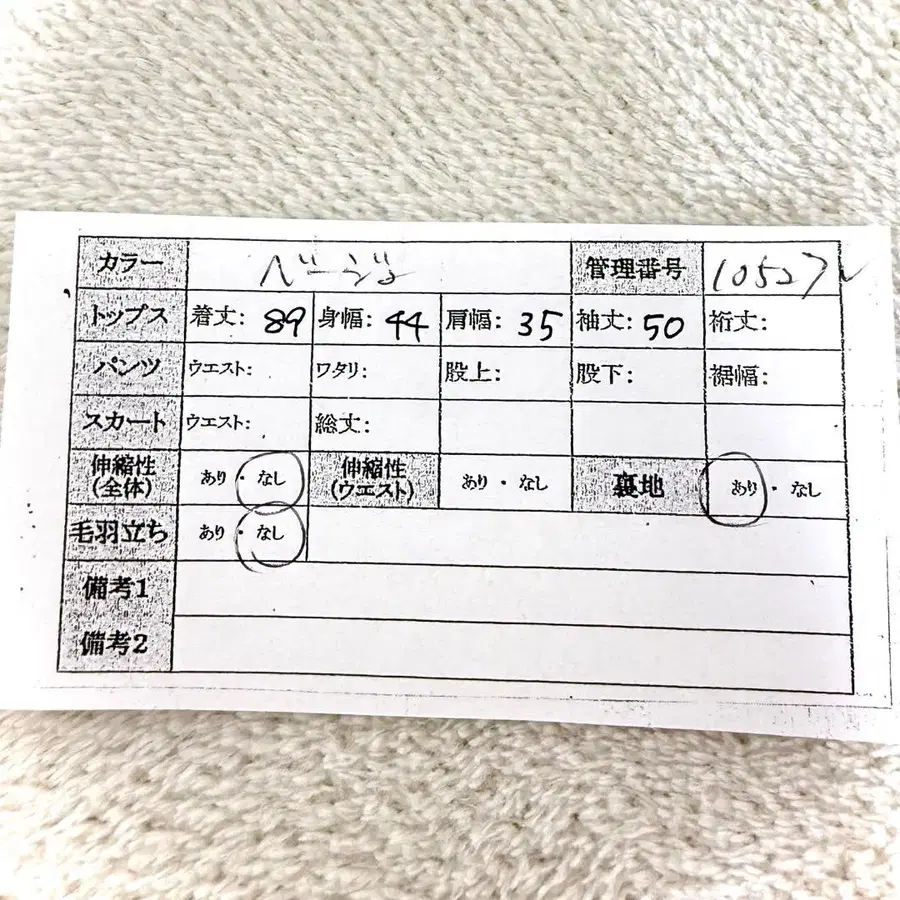 カラー ベージュ 管理番号 10527
トップス 着丈: 89 身幅: 44 肩幅: 35 袖丈: 50 裄丈:
パンツ ウエスト: ワタリ: 股上: 股下: 裾幅:
スカート ウエスト: 総丈:
伸縮性 (全体) あり ・ なし 伸縮性 (ウエスト) あり ・ なし 裏地 あり ・ なし
毛羽立ち あり ・ なし
備考1
備考2